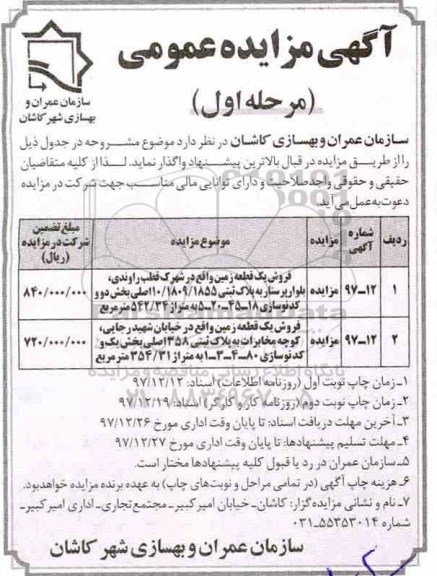 آگهی مزایده عمومی
(مرحله اول)
سازمان عمران و
بهسازی شهر کاشان
سازمان عمران و بهسازی کاشان در نظر دارد موضوع مشروحه در جدول ذیل
را از طریق مزایده در قبال بالاترین پیشنهاد واگذار نماید. لذا از کلیه متقاضیان
حقیقی و حقوقی واجد صلاحیت و دارای توانایی مالی مناسب جهت شرکت در مزایده
دعوت به عمل می‌آید.
ردیف شماره آگهی مزایده موضوع مزایده مبلغ تضمین شرکت در مزایده (ریال)
۱ ۹۷-۱۲ مزایده فروش یک قطعه زمین واقع در شهرک قطب راوندی،
بلوار پرستار به پلاک ثبتی ۱۰/۱۸۰۹/۱۸۵۵ اصلی بخش دو و
کدنوسازی ۱۸-۴۵-۲۰-۵ به متراژ ۵۴۲/۳۴ مترمربع ۸۴۰/۰۰۰/۰۰۰
۲ ۹۷-۱۲ مزایده فروش یک قطعه زمین واقع در خیابان شهید رجایی،
کوچه مخابرات به پلاک ثبتی ۳۵۸ اصلی بخش یک و
کدنوسازی ۸۰-۴-۳-۱ به متراژ ۳۵۴/۳۱ مترمربع ۷۲۰/۰۰۰/۰۰۰
۱ـ زمان چاپ نوبت اول (روزنامه اطلاعات) اسناد: ۹۷/۱۲/۱۲
۲ـ زمان چاپ نوبت دوم (روزنامه کار و کارگر) اسناد: ۹۷/۱۲/۱۹
۳ـ آخرین مهلت دریافت اسناد: تا پایان وقت اداری مورخ ۹۷/۱۲/۲۶
۴ـ مهلت تسلیم پیشنهادها: تا پایان وقت اداری مورخ ۹۷/۱۲/۲۷
۵ـ سازمان عمران در رد یا قبول کلیه پیشنهادها مختار است.
۶ـ هزینه چاپ آگهی (در تمامی مراحل و نوبت‌های چاپ) به عهده برنده مزایده خواهد بود.
۷ـ نام و نشانی مزایده گزار: کاشان- خیابان امیرکبیر- مجتمع تجاری- اداری امیرکبیر-
شماره ۵۵۳۵۳۰۱۴-۰۳۱
سازمان عمران و بهسازی شهر کاشان